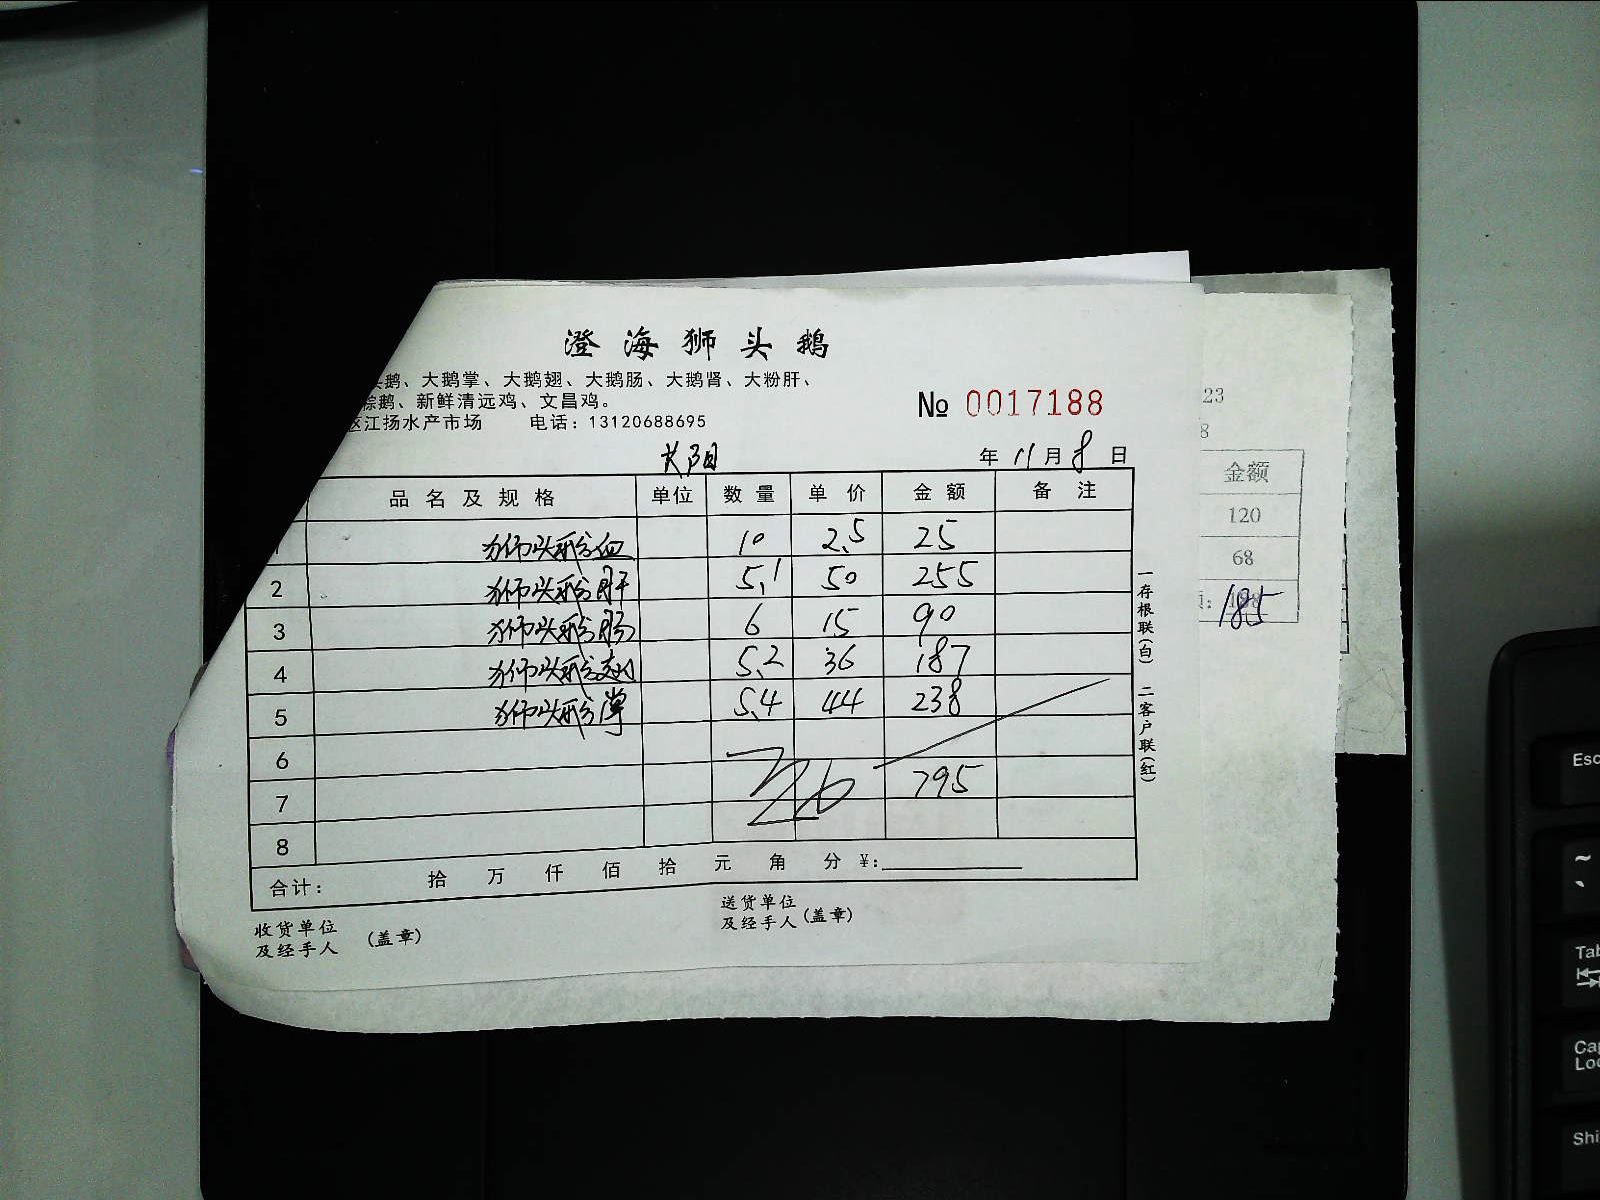 澄海狮头鹅
头鹅、大鹅掌、大鹅翅、大鹅肠、大鹅肾、大粉肝、
棕鹅、新鲜清远鸡、文昌鸡。
区江扬水产市场 电话：13120688695
№ 0017188
年 11 月 8 日
品名及规格 单位 数量 单价 金额 备注
狮头鹅血 10 2.5 25
2 狮头鹅肝 5.1 50 255
3 狮头鹅肠 6 15 90
4 狮头鹅翅 5.2 36 187
5 狮头鹅掌 5.4 44 238
6
7 795
8
合计： 拾 万 仟 佰 拾 元 角 分 ¥：
收货单位
及经手人 （盖章）
送货单位
及经手人（盖章）
一存根联（白） 二客户联（红）
23
8
金额
120
68
185
Esc
~
Tab
Cap
Loc
Shi